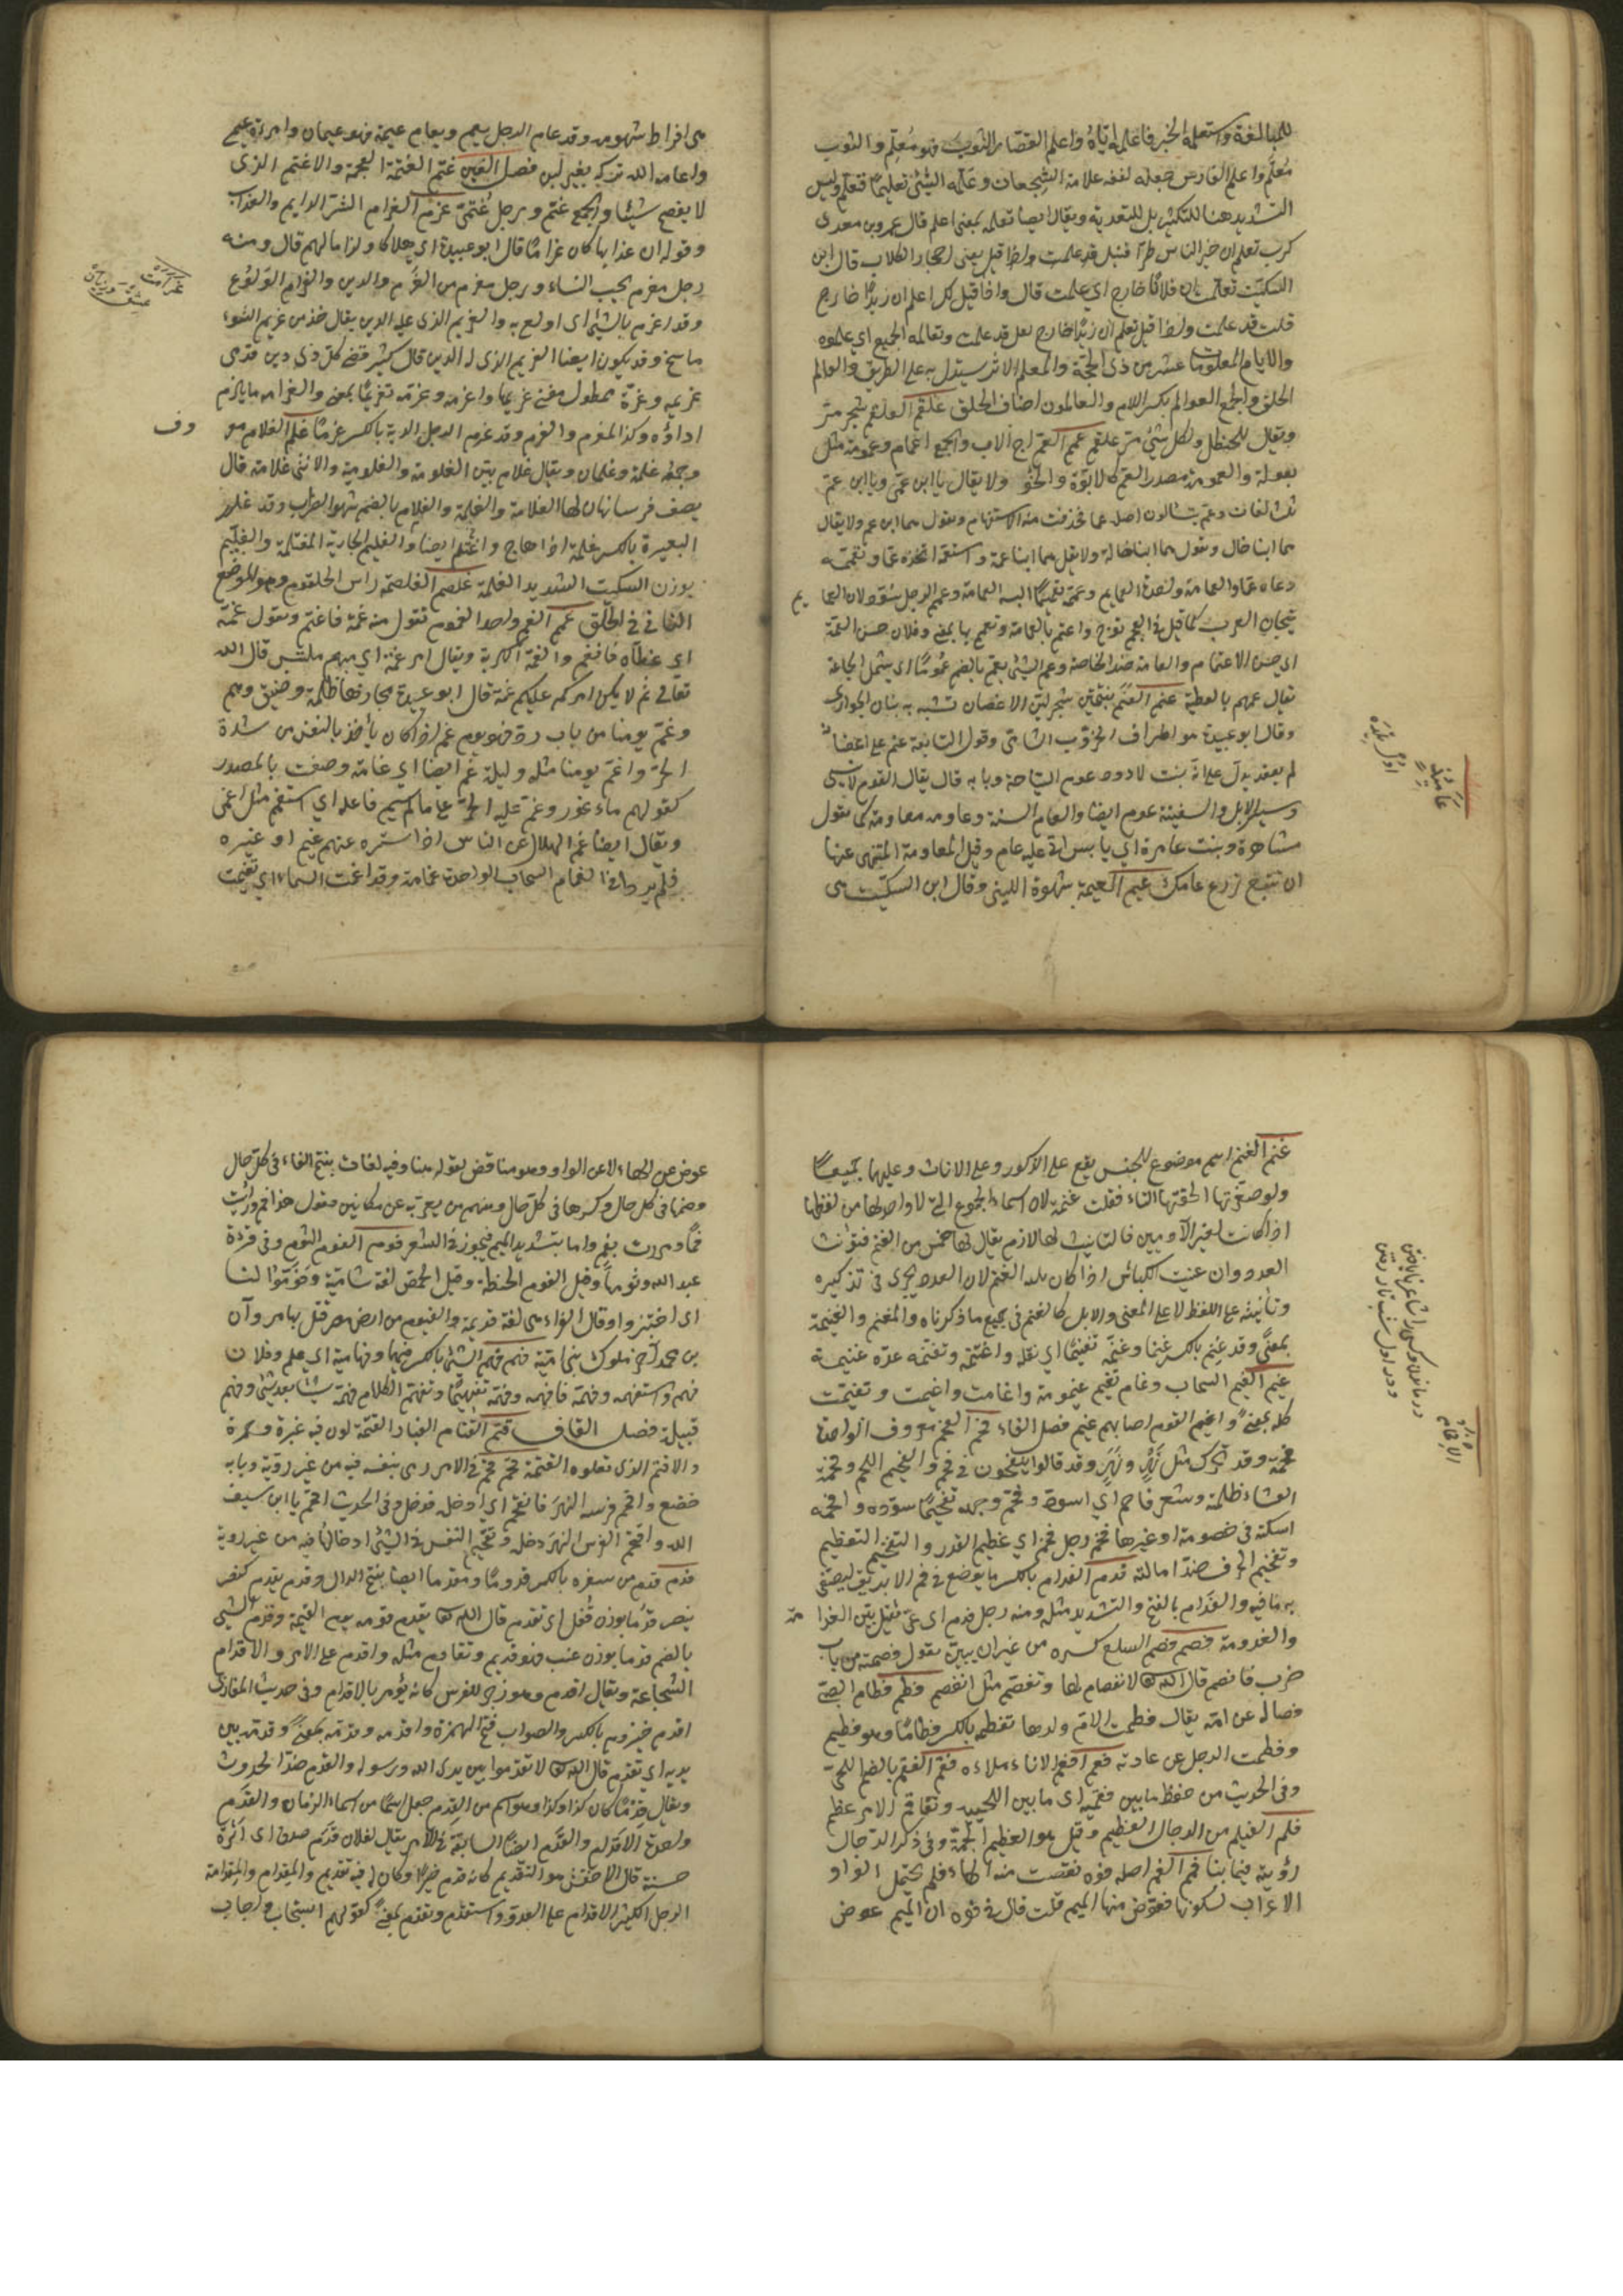 للمبالغة واستعلمه الخبر فاعلمه اياه واعلم القصّار الثوب فهو مُعلِم والثوب
مُعلَم واعلم الفارس جعل لنفسه علامة الشجعان وعلّمه الشيئ تعليمًا فتعلّم وليس
التشديد هنا للتكثير بل للتعدية ويقال ايضا تعلم بمعنى اعلم قال عمرو بن معدى
كرب تعلم ان خير الناس طرّا قتيل
السكيت تعلّمت ان فلانًا خارج اي علمت قال واذا قيل لك اعلم ان زيدًا خارج
قلت قد علمت واذا قيل تعلم ان زيدًا خارج لم تقل قد علمت وتعالمه الجميع اي علموه
والايام المعلومات عشر من ذى الحجّة والمعلم الاثر يستدل به على الطريق والعالم
الخلق والجمع العوالم بكسر اللام والعالمون اصناف الخلق علقم العلقم شجر مرّ
ويقال للحنظل ولكل شيئ مرّ علقم عمم العم اخ الاب والجمع اعمام وعمومة مثل
بعولة والعمومة مصدر العم كالابوّة والخؤ ولا يقال يا ابن عمّى ويا ابن عمّ
ثلث لغات وعمّ يتسالون اصله عما فحذفت منه الاستفهام وتقول هما ابن عم ولا يقال
هما ابنا خال وتقول هما ابنا خالة ولا تقل هما ابنا عمة واستعمه اتخذه عمّا وتعمّمه
دعاه عمّا والعمامة واحدة العمايم وعمّمه تعميمًا البسه العمامة وعمم الرجل سُوّد لان العما
يم
تيجان العرب كما قيل فى العجم توّج واعتم بالعمامة وتعمم بها بمعنى وفلان حسن العمّة
اي حسن الاعتمام والعامة ضد الخاصة وعم الشيئ يعم بالضم عمومًا اي شمل الجماعة
يقال عمهم بالعطية عنم العَنَم بفتحتين شجر ليّن الاغصان تشبه به بنان الجوارى
وقال ابو عبيدة هو اطراف الخرّوب الشامى وقول النابغة عنم على اغصانه
لم يعقد يدل على انه نبت لا دود عوم العوم السباحة وبابه قال
وسير الابل والسفينة عوم ايضا والعام السنة وعاومه معاومة كما تقول
مشاهرة ونبت عامىّ اي يابس اتى عليه عام وقيل المعاومة المنهى عنها
ان تبيع زرع عامك عيم العيمة شهوة اللبن وقال ابن السكيت هى
هى افراط شهوته وقد عام الرجل يعيم ويعام عيمة فهو عيمان وامرءة عيمى
واعامه الله تركه بغير لبن فصل الغين غتم الغتمة العجمة والاغتم الذى
لا يفصح شيئا والجمع غتم ورجل غُتمىّ غرم الغرام الشر الدايم والعذاب
وقوله ان عذابها كان غرامًا قال ابو عبيدة اي هلاكا ولزاما لهم قال ومنه
رجل مغرم بحب النساء ورجل مغرم من الغُرم والدين والغرام الولوع
وقد اغرم بالشيئ اى اولع به والغريم الذى عليه الدين يقال خذ من غريم السوء
ما سنح وقد يكون ايضا الغريم الذى له الدين قال كثيّر قضى كل ذى دين فوفّى
غريمه وعزّة ممطول معنّى غريمها واغرمه وغرّمه تغريمًا بمعنى والغرامة ما يلزم
اداؤه وكذا المغرم والغرم وقد غرم الرجل الدية بالكسر غرمًا غلم الغلام معر
وف
وجمعه غلمة وغلمان ويقال غلام بيّن الغلومة والغلومية والانثى غلامة قال
يصف فرسا تهان لها الغلامة والغلام والغلام بالضم شهوة الضراب وقد غلم
البعير بالكسر غلمة اذا هاج واغتلم ايضا والغيلم الجارية المغتلمة والغلّيم
بوزن السكيت الشديد الغلمة غلصم الغلصمة راس الحلقوم وهو الموضع
الناتئ فى الحلق غمم الغم واحد الغموم تقول منه غمه فاغتم وتقول غمّه
اي غطّاه فانغم والغمة الكربة ويقال امر غمة اي مبهم ملتبس قال الله
تعالى ثم لا يكن امركم عليكم غمة قال ابو عبيدة مجازها ظلمة وضيق وهمّ
وغمّ يومنا من باب ردّ فهو يوم غم اذا كان يأخذ بالنفس من شدة
الحرّ واغمّ يومنا مثله وليلة غم ايضا اي غامّة وصفت بالمصدر
كقولهم ماء غور وغمّ عليه الخبر على ما لم يسم فاعله اي استعجم مثل اغمى
ويقال ايضا غمّ الهلال على الناس اذا استره عنهم غيم او غيره
فلم ير والغمام السحاب الواحدة غمامة وقد اغمت السماء اي تغيمت
غنم الغنم اسم موضوع للجنس يقع على الذكور وعلى الاناث وعليهما جميعًا
ولو صغّرتها الحقتها التاء فقلت غنيمة لان اسماء الجموع التى لا واحد لها من لفظها
اذا كانت لغير الآدميين فالتانيث لها لازم يقال لها خمس من الغنم فتؤنث
العدد وان عنيت الكباش اذا كان يليه الغنم لان العدد يجرى فى تذكيره
وتأنيثه على اللفظ لا على المعنى والابل كالغنم فى جميع ما ذكرناه والمغنم والغنيمة
بمعنًى وقد غنم بالكسر غنما وغنّمه تغنيمًا اي نفله واغتنمه وتغنّمه عدّه غنيمة
غيم الغيم السحاب وغام تغيم غيمومة واغامت واغيمت وتغيمت
كله بمعنًى واغيم القوم اصابهم غيم فصل الفاء فحم الفحم معروف الواحدة
فحمة وقد تحرك مثل نَهْر ونَهَر وقد قالوا ينفخون فى فحم والفحيم الفحم وفحمة
العشاء ظلمة وشعر فاحم اي اسود وفحّم وجهه تفحيمًا سوّده وافحمه
اسكته فى خصومة او غيرها فخم رجل فخم اي عظيم القدر والتفخيم التعظيم
وتفخيم الحرف ضد امالته فدم الفدام بالكسر ما يوضع فى فم الابريق ليصفّى
به ما فيه والفدّام بالفتح والتشديد مثله ومنه رجل فدم اى عىّ ثقيل بيّن الفدا
مة
والفدومة فصم فصم السلع كسره من غير ان يبين تقول فصمته من باب
ضرب فانفصم قال الله تعالى لا انفصام لها وتفصّم مثل انفصم فطم فطام الصبىّ
فصاله عن امّه يقال فطمت الام ولدها تفطمه بالكسر فطامًا وهو فطيم
وفطمت الرجل عن عادته فعم افعم الاناء ملاءه فقم الفقم بالضم اللحىّ
وفى الحديث من حفظ ما بين فقميه اى ما بين اللحيين وتفاقم الامر عظم
فلم الفيلم من الرجال العظيم وقيل هو العظيم الجمّة وفى ذكر الدجال
رؤيته فيلمانيا فمم الفم اصله فوه نقصت منه الهاء فلم يحتمل الواو
الاعراب لسكونها فعوّض منها الميم قلت قال فى فوه ان الميم عوض
عوض عن الهاء لا عن الواو وهو مناقض لقوله هنا وفيه لغات بفتح الفاء فى كل حال
وضمها فى كل حال وكسرها فى كل حال ومنهم من يعربه عن مكانين فيقول هذا فم ورأيت
فمًا ومررت بفم واما بتشديد الميم فيجوز فى الشعر فوم الفوم الثوم وفى قراءة
عبد الله وثومها وقيل الفوم الحنطة وقيل الحمص لغة شامية وفوّموا لنا
اى اختبزوا وقال الفراء هى لغة قديمة والفيوم من ارض مصر قتل بها مروان
بن محمد آخر ملوك بنى امية فهم فهم الشيئ بالكسر فهما وفهامية اي علم وفلان
فهم واستفهمه وفهمه فافهمه وفهّمه تفهيمًا وتفهّم الكلام فهمه شيئا بعد شيئ وفهم
قبيلة فصل القاف قتم القتام الغبار والقتمة لون فيه غبرة وحمرة
والاقتم الذى تعلوه القتمة قحم قحم فى الامر رمى بنفسه فيه من غير رويّة وبابه
خضع واقحم فرسه النهر فانقحم اي ادخله فدخل وفى الحديث اقحم يا ابن سيف
الله واقتحم الفرس النهر دخله وتقحيم النفس فى الشيئ ادخالها فيه من غير روية
قدم قدم من سفره بالكسر قدومًا ومقدما ايضا بفتح الدال وقدم يقدم كنصر
ينصر قدمًا بوزن قُفل اي تقدم قال الله تعالى يقدم قومه يوم القيمة وقدم الشيئ
بالضم قدما بوزن عنب فهو قديم وتقادم مثله واقدم على الامر والاقدام
الشجاعة ويقال اقدم وهو زجر للفرس كانه يؤمر بالاقدام وفى حديث المغازى
اقدم حيزوم بالكسر والصواب فتح الهمزة واقدمه وقدّمه بمعنًى وقدّم بين
يديه اي تقدّم قال الله تعالى لا تقدّموا بين يدى الله ورسوله والقدم ضدّ الحدوث
ويقال قِدْمًا كان كذا وكذا وهو اسم من القدم جعل اسمًا من اسماء الزمان والقدم
واحدة الاقدام والقدم ايضًا السابقة فى الامر يقال لفلان قدم صدق اى اثرة
حسنة قال الاخفش هو التقديم كانه قدم خيرًا وكان له فيه تقديم والمقدام والمقدامة
الرجل الكثير الاقدام على العدو واستقدم وتقدم بمعنًى كقولهم استجاب واجاب